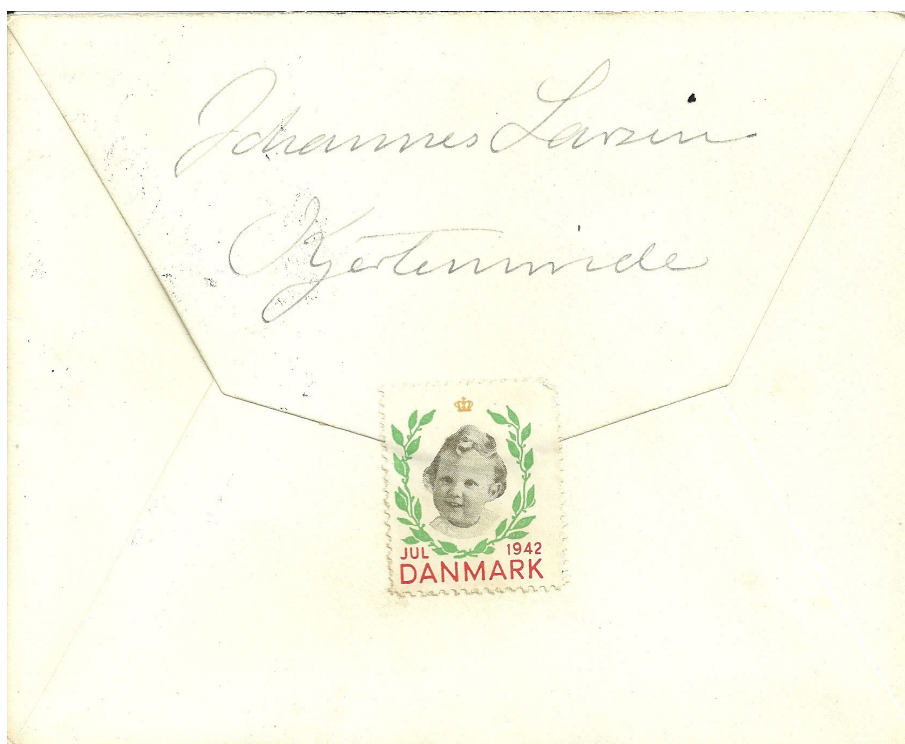 Johannes Larsen
Kjerteminde
JUL 1942
DANMARK